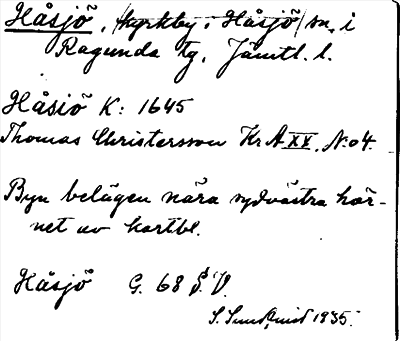 Håsjö, (kyrkby i Håsjö) sn. i
Ragunda tg, Jämtl. l.
Håsiö K: 1645
Thomas Christersson KrA XX, N:o 4.
Byn belägen nära sydvästra hör-
net av kartbl.
Håsjö G. 68 S.V.
S. Sundquist 1935.